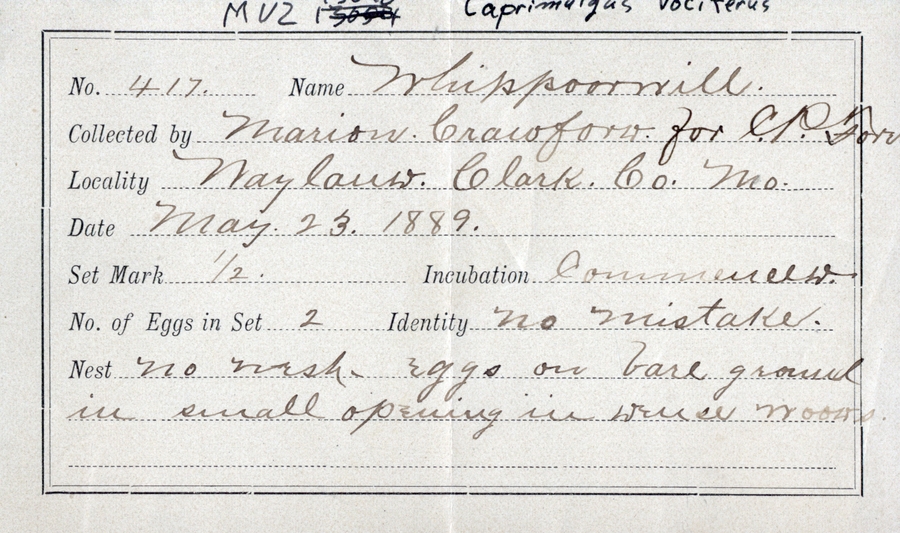 MVZ Caprimulgus vociferus
No. 417. Name Whippoorwill.
Collected by Marion Crawford. for C.P. Forv
Locality Wayland. Clark. Co. Mo.
Date May. 23. 1889.
Set Mark 1/2. Incubation Commenced.
No. of Eggs in Set 2 Identity no mistake.
Nest no nest. Eggs on bare ground
in small opening in dense woods.